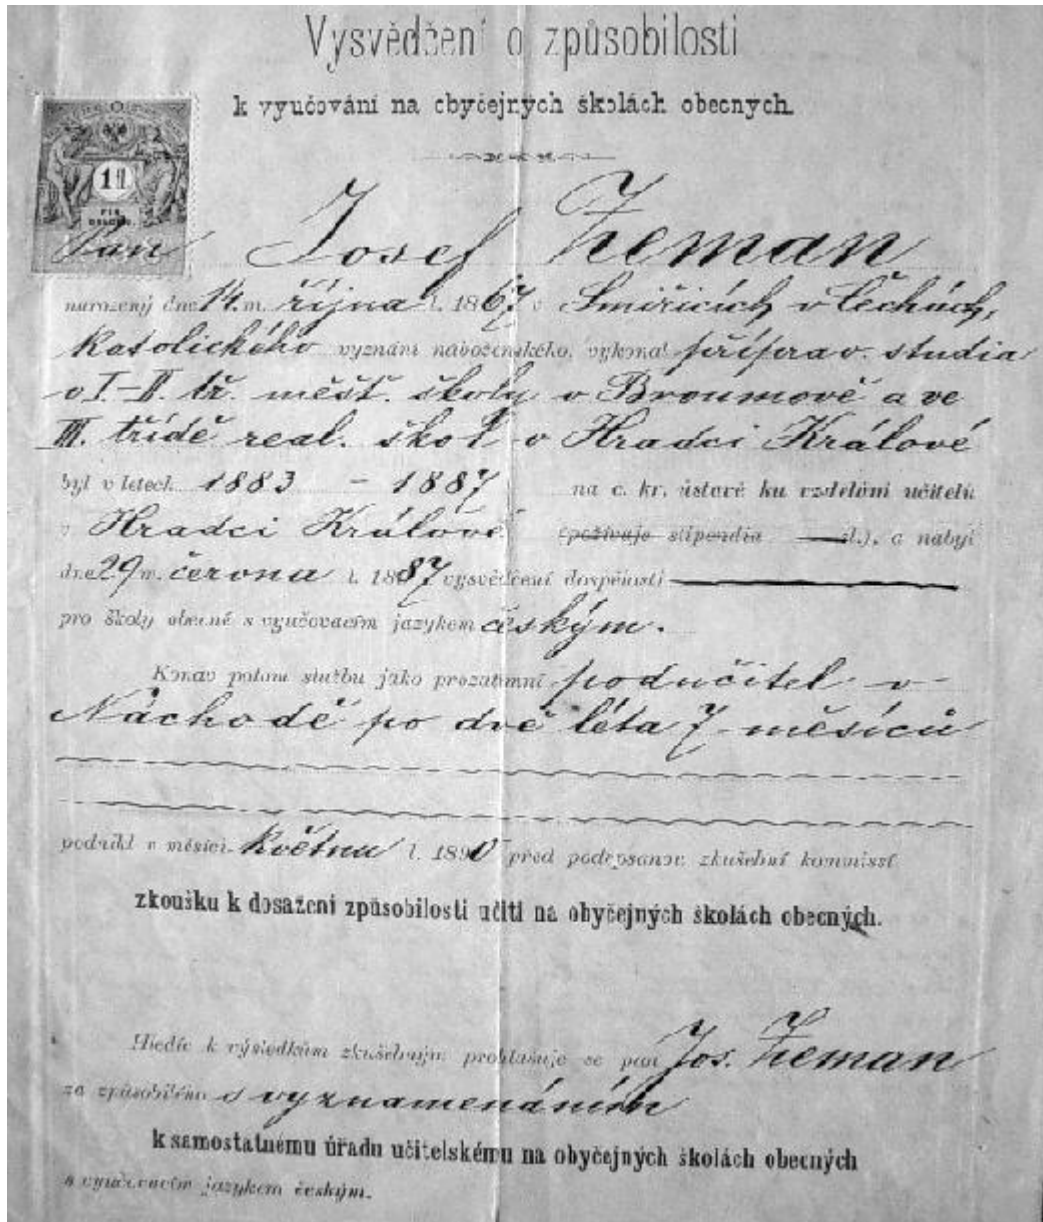 Vysvědčení o způsobilosti
k vyučování na obyčejných školách obecných.
1 fl.
Pan Josef Zeman
narozený dne 14. m. října l. 1867 v Smiřicích v Čechách,
katolického vyznání náboženského, vykonal příprav. studia
v I-II. tř. měšť. školy v Broumově a ve
III. třídě real. škol v Hradci Králové
byl v letech 1883 - 1887 na c. kr. ústavě ku vzdělání učitelů
v Hradci Králové (požívaje stipendia zl.), a nabyl
dne 29. m. června l. 1887 vysvědčení dospělosti
pro školy obecné s vyučovacím jazykem českým.
Konav potom službu jako prozatimní podučitel v
Náchodě po dvě léta 7 měsíců
podnikl v měsíci květnu l. 1890 před podepsanou zkušební kommissí
zkoušku k dosažení způsobilosti učiti na obyčejných školách obecných.
Hledíc k výsledkům zkušebným prohlašuje se pan Jos. Zeman
za způsobilého s vyznamenáním
k samostatnému úřadu učitelskému na obyčejných školách obecných
s vyučovacím jazykem českým.